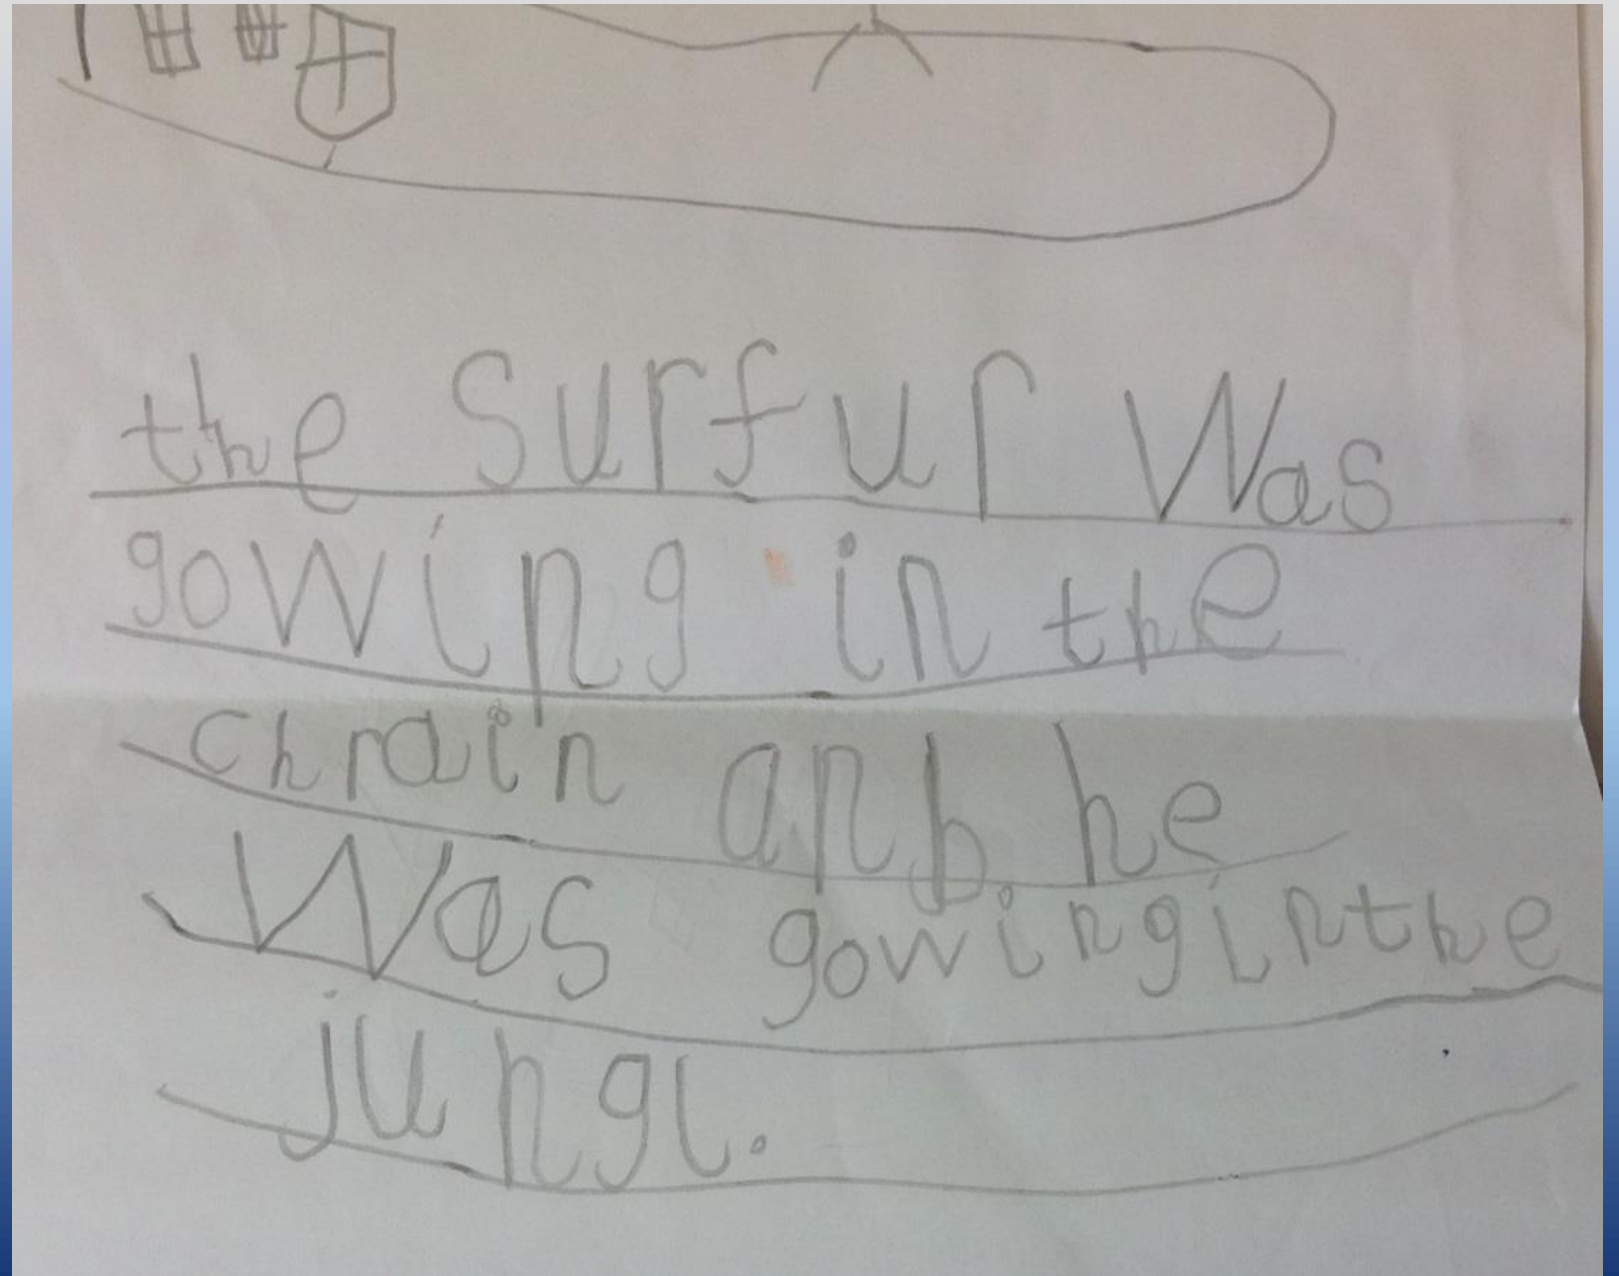 the surfur Was
gowing in the
chrain anb he
Was gowinginthe
jungl.